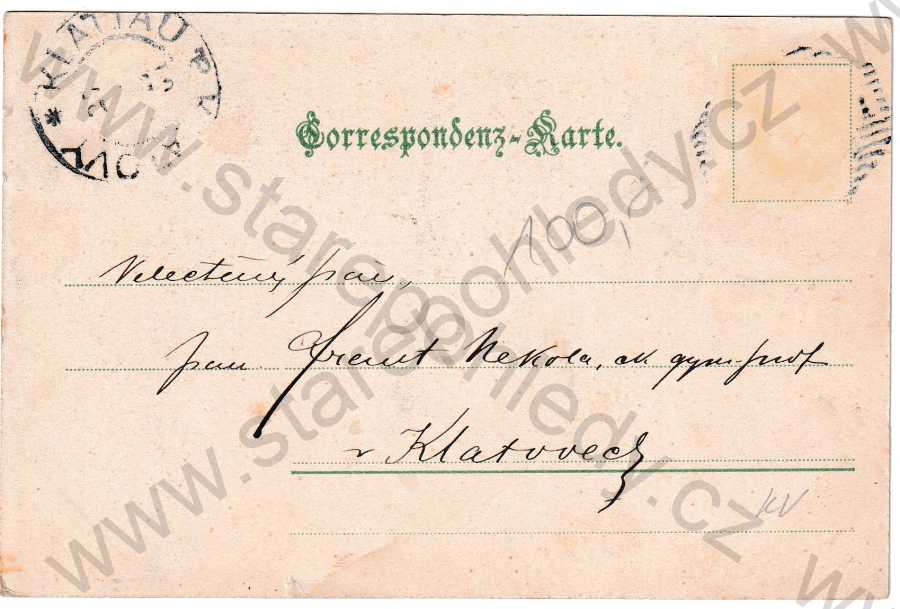 KLATTAU
Correspondenz-Karte.
1000,
Velectěný pan,
pan Nekola, ck gym. prof
v Klatovech
KV
www.starepohledy.cz
www.starepohledy.cz